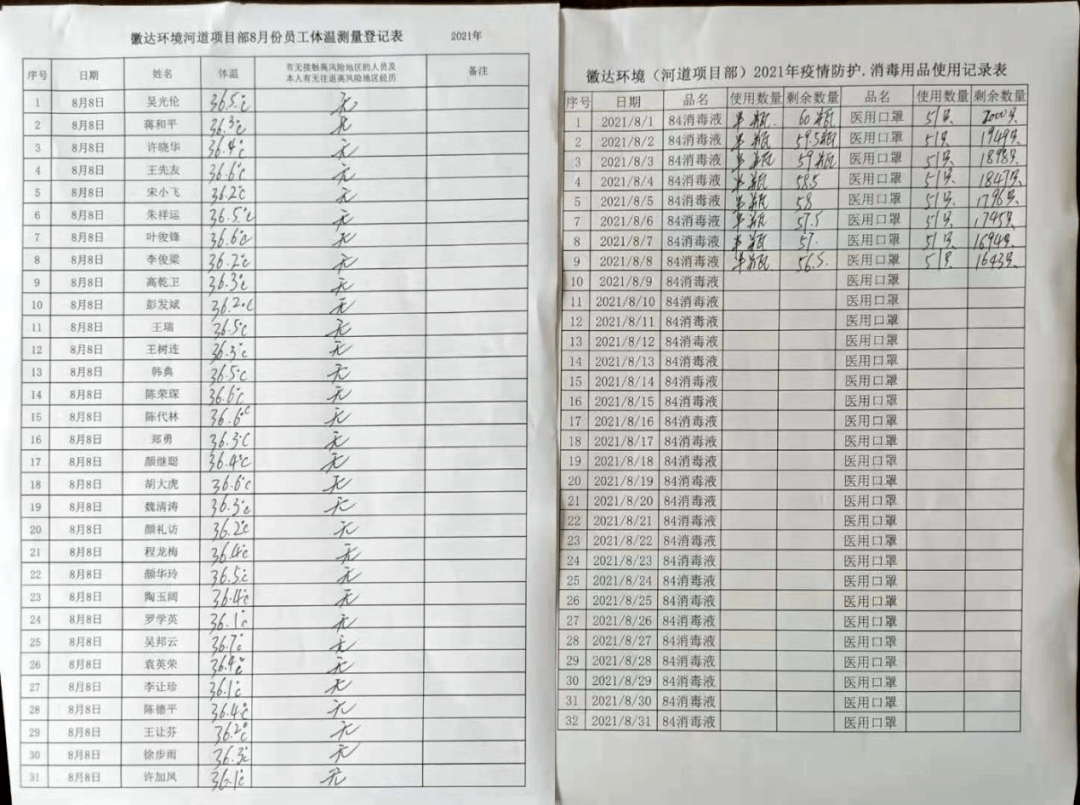 徽达环境河道项目部8月份员工体温测量登记表 2021年
序号 日期 姓名 体温 有无接触高风险地区的人员及本人有无往返高风险地区经历 备注
1 8月8日 吴光伦 36.5℃ 无
2 8月8日 蒋和平 36.3℃ 无
3 8月8日 许晓华 36.4℃ 无
4 8月8日 王先友 36.6℃ 无
5 8月8日 宋小飞 36.2℃ 无
6 8月8日 朱祥运 36.5℃ 无
7 8月8日 叶俊锋 36.6℃ 无
8 8月8日 李俊梁 36.2℃ 无
9 8月8日 高乾卫 36.3℃ 无
10 8月8日 彭发斌 36.2℃ 无
11 8月8日 王瑞 36.5℃ 无
12 8月8日 王树连 36.3℃ 无
13 8月8日 韩典 36.5℃ 无
14 8月8日 陈荣琛 36.6℃ 无
15 8月8日 陈代林 36.6℃ 无
16 8月8日 郑勇 36.3℃ 无
17 8月8日 颜继聪 36.4℃ 无
18 8月8日 胡大虎 36.6℃ 无
19 8月8日 魏清涛 36.3℃ 无
20 8月8日 颜礼访 36.2℃ 无
21 8月8日 程龙梅 36.4℃ 无
22 8月8日 颜华玲 36.5℃ 无
23 8月8日 陶玉阔 36.4℃ 无
24 8月8日 罗学英 36.1℃ 无
25 8月8日 吴邦云 36.7℃ 无
26 8月8日 袁英荣 36.4℃ 无
27 8月8日 李让珍 36.1℃ 无
28 8月8日 陈德平 36.4℃ 无
29 8月8日 王让芬 36.2℃ 无
30 8月8日 徐步雨 36.3℃ 无
31 8月8日 许加凤 36.1℃ 无
徽达环境（河道项目部）2021年疫情防护.消毒用品使用记录表
序号 日期 品名 使用数量 剩余数量 品名 使用数量 剩余数量
1 2021/8/1 84消毒液 半瓶 60瓶 医用口罩 51只 2000只
2 2021/8/2 84消毒液 半瓶 59.5瓶 医用口罩 51只 1949只
3 2021/8/3 84消毒液 半瓶 59瓶 医用口罩 51只 1898只
4 2021/8/4 84消毒液 半瓶 58.5 医用口罩 51只 1847只
5 2021/8/5 84消毒液 半瓶 58 医用口罩 51只 1796只
7 2021/8/6 84消毒液 半瓶 57.5 医用口罩 51只 1745只
8 2021/8/7 84消毒液 半瓶 57. 医用口罩 51只 1694只
9 2021/8/8 84消毒液 半瓶 56.5 医用口罩 51只 1643只
10 2021/8/9 84消毒液 医用口罩
11 2021/8/10 84消毒液 医用口罩
12 2021/8/11 84消毒液 医用口罩
13 2021/8/12 84消毒液 医用口罩
14 2021/8/13 84消毒液 医用口罩
15 2021/8/14 84消毒液 医用口罩
16 2021/8/15 84消毒液 医用口罩
17 2021/8/16 84消毒液 医用口罩
18 2021/8/17 84消毒液 医用口罩
19 2021/8/18 84消毒液 医用口罩
20 2021/8/19 84消毒液 医用口罩
21 2021/8/20 84消毒液 医用口罩
22 2021/8/21 84消毒液 医用口罩
23 2021/8/22 84消毒液 医用口罩
24 2021/8/23 84消毒液 医用口罩
25 2021/8/24 84消毒液 医用口罩
26 2021/8/25 84消毒液 医用口罩
27 2021/8/26 84消毒液 医用口罩
28 2021/8/27 84消毒液 医用口罩
29 2021/8/28 84消毒液 医用口罩
30 2021/8/29 84消毒液 医用口罩
31 2021/8/30 84消毒液 医用口罩
32 2021/8/31 84消毒液 医用口罩